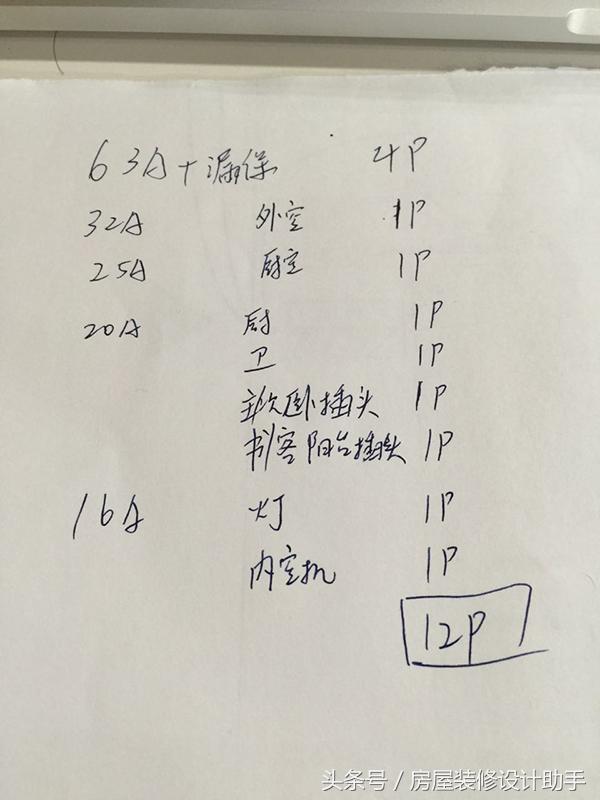 63A+漏保 4P
32A 外空 1P
25A 厨空 1P
20A 厨 1P
卫 1P
主次卧插头 1P
书客阳台插头 1P
16A 灯 1P
内空机 1P
12P
头条号 / 房屋装修设计助手